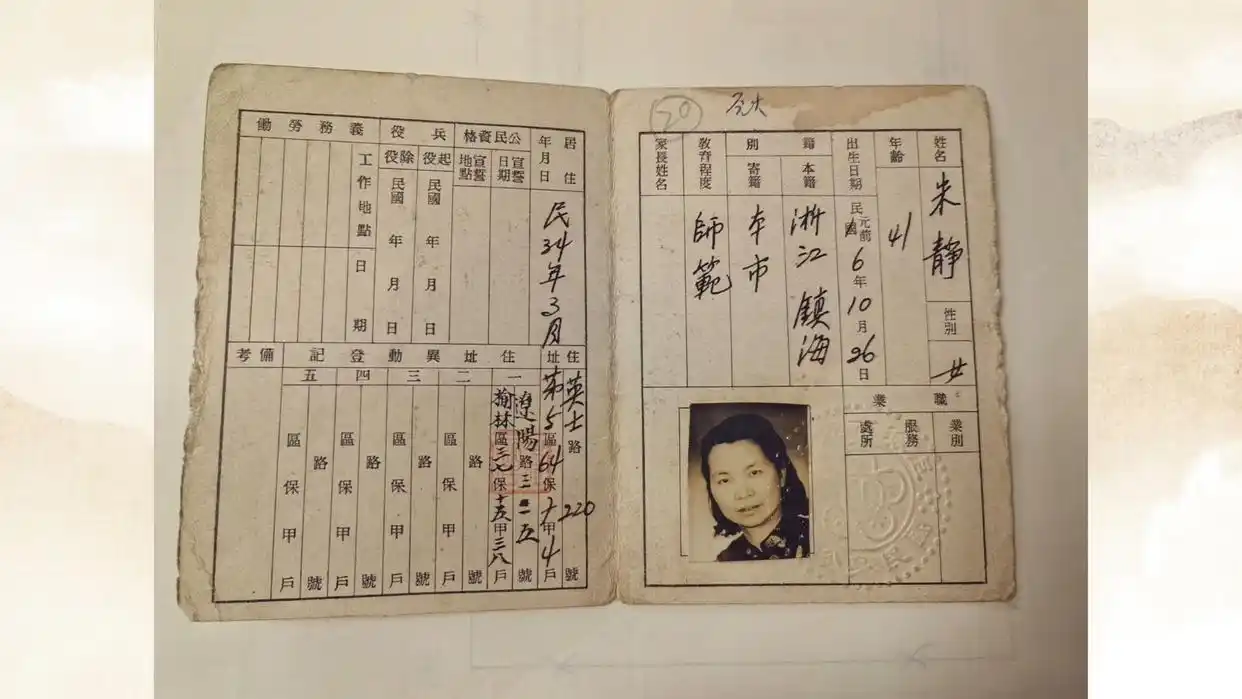 姓名 朱静
性別 女
年齡 41
出生日期 民國元前6年10月26日
籍別
本籍 浙江 鎮海
寄籍 本市
教育程度 師範
家長姓名
職業
業別
服務處所
20
居住年月日 民34年3月
公民資格
宣誓日期
宣誓地點
兵役
起役 民國 年 月 日
除役 民國 年 月 日
義務勞働
工作地點
日期
住址 英士路220號
第5區64保 甲4戶
住址異動登記
一 遼陽路 號
榆林區三七保十五甲三八戶
二 路 號 區 保 甲 戶
三 路 號 區 保 甲 戶
四 路 號 區 保 甲 戶
五 路 號 區 保 甲 戶
備考